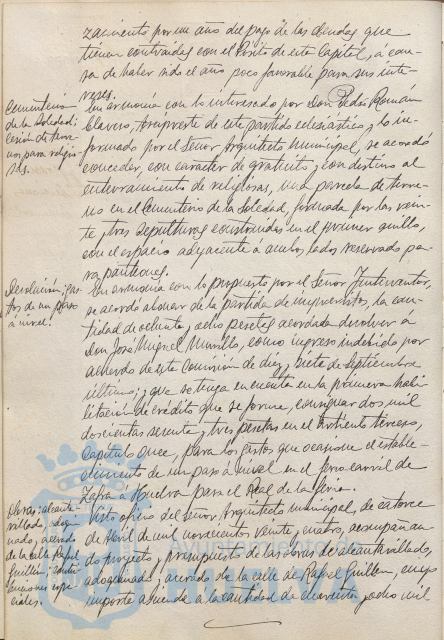 zamiento por un año del pago de las deudas que
tienen contraidas con el Pósito de esta Capital, á cau-
sa de haber sido el año poco favorable para sus inte-
reses.
Cementerio
de la Soledad;
cesión de terre-
nos para religio-
sas.
En armonía con lo interesado por Don Pedro Román
Clavero, Arcipreste de este partido eclesiástico y lo in-
formado por el Señor Arquitecto municipal, se acordó
conceder, con caracter de gratuito y con destino al
enterramiento de religiosas, una parcela de terre-
no en el Cementerio de la Soledad, formada por las vein-
te y tres sepulturas construidas en el primer
con el espacio adyacente á ambos lados reservado pa-
ra panteones.
Devolución; gas-
tos de un paso
á nivel.
En armonía con lo propuesto por el Señor Interventor,
se acordó abonar de la partida de imprevistos, la can-
tidad de ochenta y ocho pesetas acordada devolver á
Don José Miguel Murillo, como ingreso indebido por
acuerdo de esta Comisión de diez y siete de Septiembre
último; y que se tenga en cuenta en la primera habi-
litación de crédito que se forme, consignar dos mil
doscientas setenta y tres pesetas en el Artículo tercero,
Capítulo once, para los gastos que ocasione el estable-
cimiento de un paso á nivel en el ferro carril de
Zafra á Huelva para el Real de la Feria.
Obras: alcanta-
rillado, adoqui-
nado, y acerado
de la calle Rafael
Guillén; contri-
buciones espe-
ciales.
Visto oficio del Señor Arquitecto municipal, de catorce
de Abril de mil novecientos veinte y cuatro, acompañan-
do proyecto y presupuesto de las obras de alcantarillado,
adoquinado y acerado de la calle de Rafael Guillén, cuyo
importe asciende á la cantidad de cuarenta y ocho mil